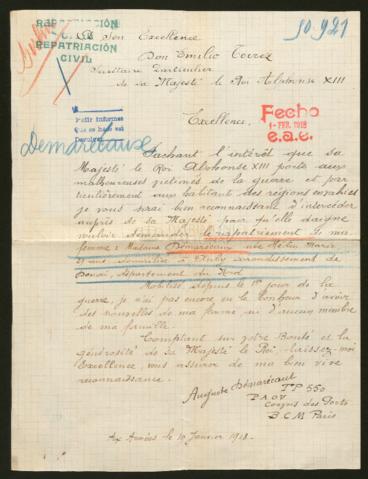 REPATRIACIÓN
CIVIL
50.921
A Son Excellence
Don Emilio Torrez
Secrétaire Particulier
de Sa Majesté le Roi Alphonse XIII
Pedir informes
Excellence,
Fecho
1- FEB. 1918
e.a.c.
Demarécaux
Sachant l'intérêt que Sa
Majesté le Roi Alphonse XIII porte aux
malheureuses victimes de la guerre et par
ticulièrement aux habitant des régions envahies
je vous serai bien reconnaissant d'intercéder
auprès de Sa Majesté pour qu'elle daigne
vouloir demander le rapatriement de ma
femme : Madame Démarécaux née Marie
domiciliée à Auby arrondissement de
Douai, département du Nord
Mobilisé depuis le 1er jour de la
guerre, je n'ai pas encore eu le bonheur d'avoir
des nouvelles de ma femme ni d'aucun membre
de ma famille.
Comptant sur votre Bonté et la
générosité de Sa Majesté le Roi, laissez-moi
Excellence vous assurer de ma bien vive
reconnaissance.
Auguste Démarécaux
TP 550
PAOV
des Ports
B.C.M Paris
Aux Armées le 10 Janvier 1918.